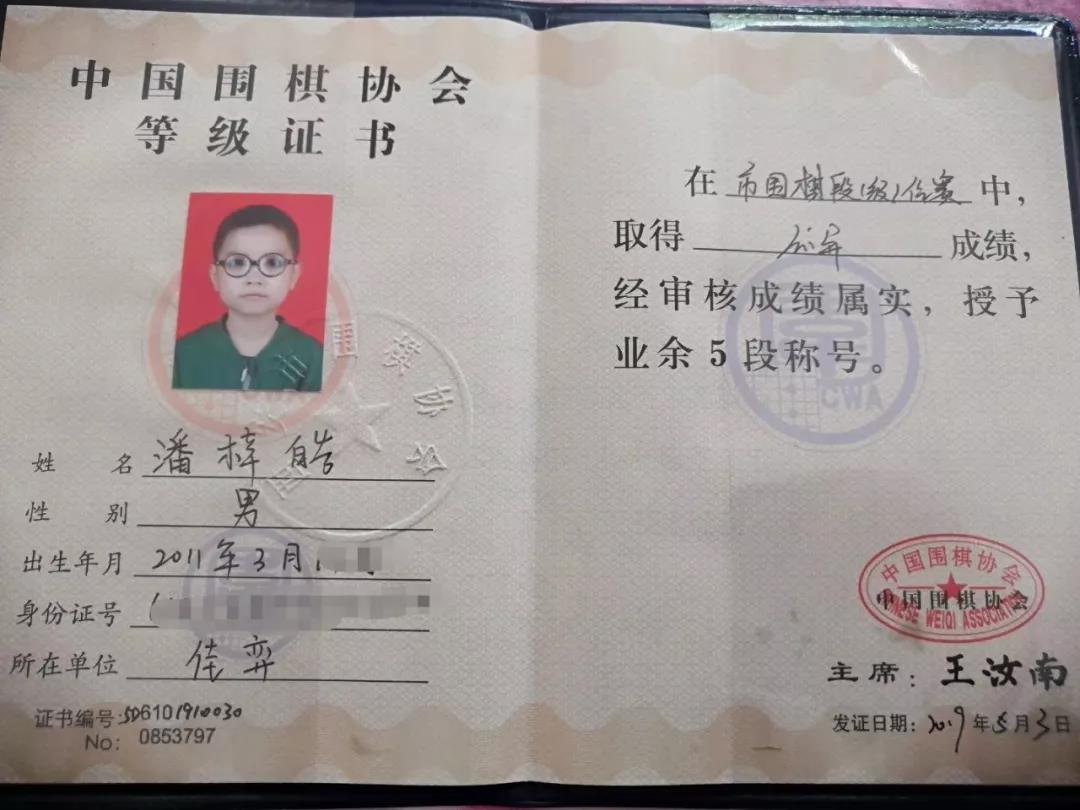 中国围棋协会
等级证书
姓 名 潘梓皓
性 别 男
出生年月 2011年3月
身份证号
所在单位 佳弈
证书编号:5D6101910030
No: 0853797
在 市围棋段(级)位赛 中,
取得 成绩,
经审核成绩属实,授予
业余5段称号。
CWA
CWA
中国围棋协会
中国围棋协会
CHINESE WEIQI ASSOCIATION
主席:王汝南
发证日期:2019年5月3日